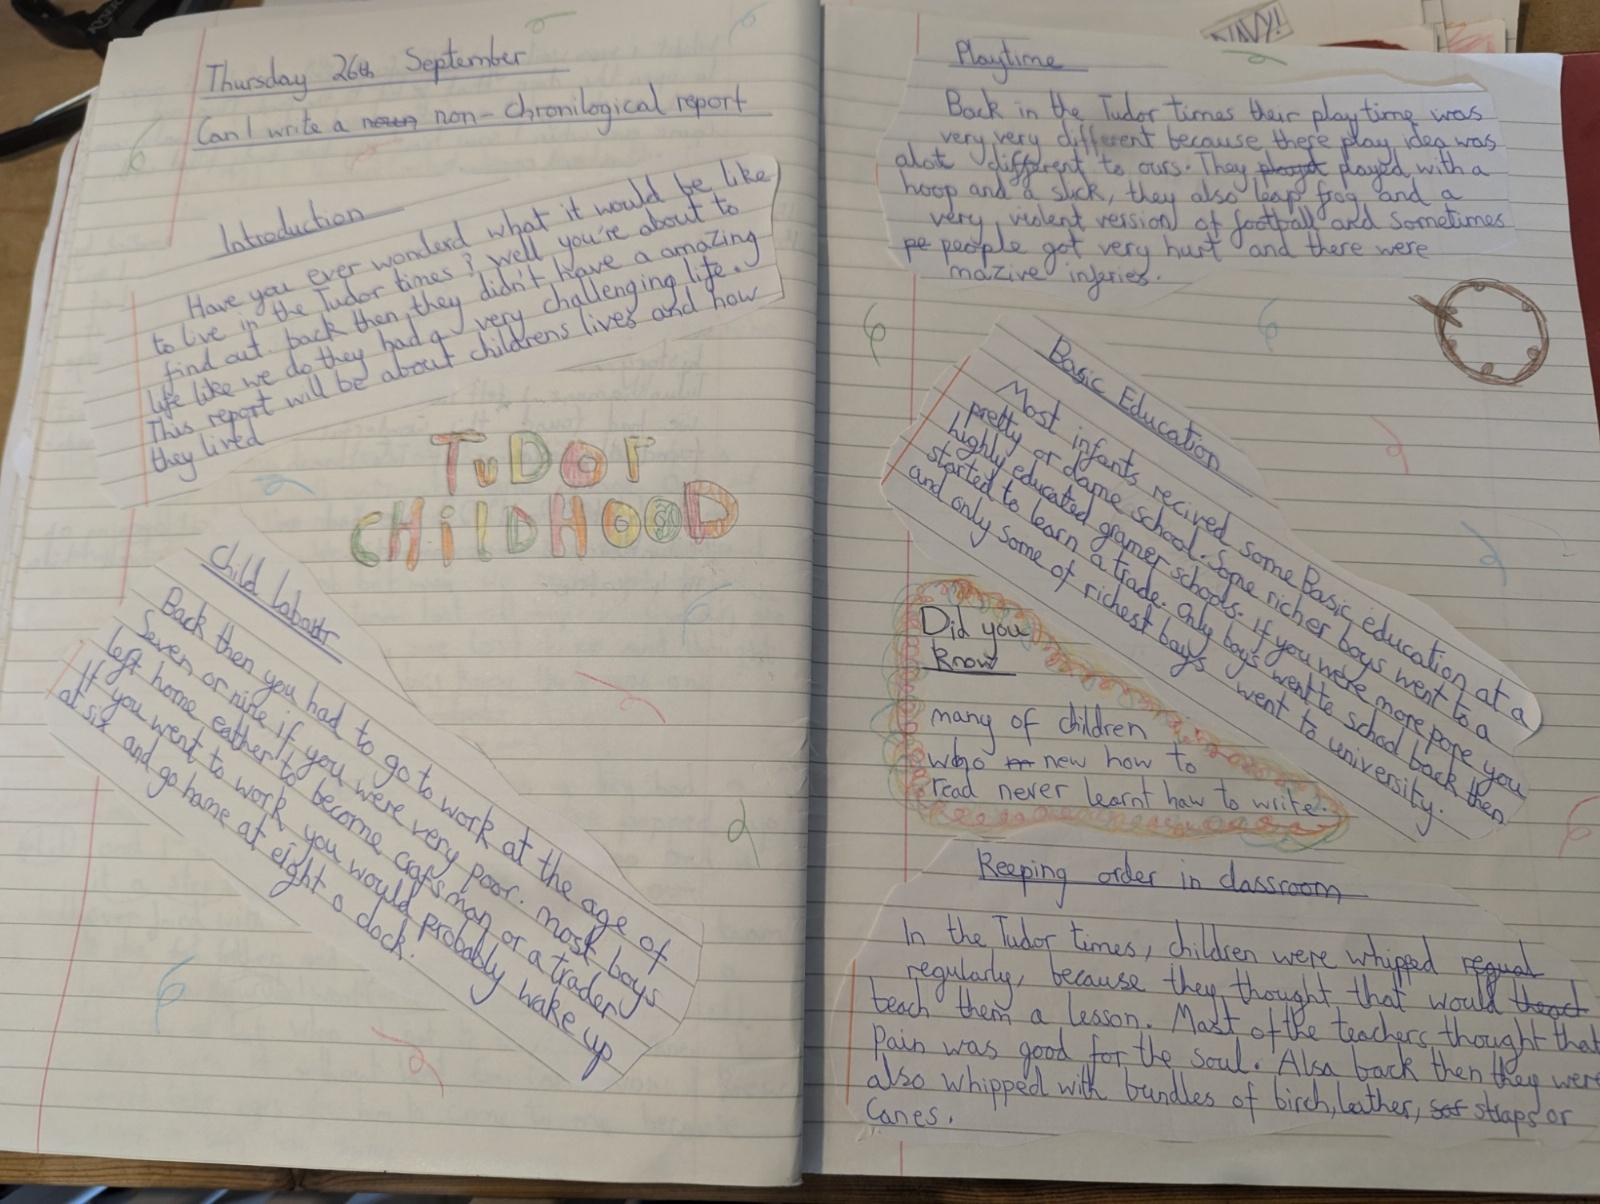 Thursday 26th September
Can I write a noun non-chronilogical report
Introduction
Have you ever wonderd what it would be like
to live in the Tudor times? Well you're about to
find out. back then, they didn't have a amazing
life like we do they had a very challenging life.
This report will be about childrens lives and how
they lived
TuDor
CHiLDHOOD
Child labour
Back then you had to go to work at the age of
Seven or nine if you were very poor. most boys
left home eather to become crafsman or a trader
If you went to work you would probably wake up
at six and go home at eight o clock.
NAVY!
Playtime
Back in the Tudor times their play time was
very very different because there play idea was
alot different to ours. They played with a
hoop and a stick, they also leap frog and a
very violent verssion of football and sometimes
pe people got very hurt and there were
mazive injeries.
Basic Education
Most infants recived some Basic education at a
pretty or dame school. Some richer boys went to a
highly educated gramer schools. if you were more pore you
started to learn a trade. only boys went to school back then
and only some of richest boys went to university.
Did you
know
many of children
who new how to
read never learnt how to write.
Keeping order in classroom
In the Tudor times, children were whipped regual
regularly, because they thought that would
teach them a lesson. Most of the teachers thought that
Pain was good for the soul. Also back then they were
also whipped with bundles of birch, leather, straps or
Canes.